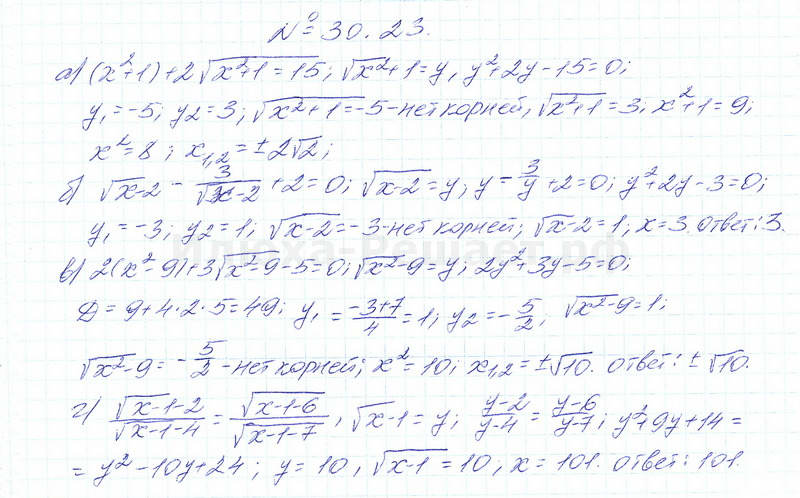 № 30.23.
а) (x²+1)+2√(x²+1=15); √x²+1=y, y²+2y-15=0;
y₁=-5; y₂=3; √(x²+1=-5) - нет корней, √(x²+1)=3. x²+1=9;
x²=8; x₁,₂=±2√2;
б) √x-2 - 3/√(x-2) +2=0; √(x-2)=y; y-3/y+2=0; y²+2y-3=0;
y₁=-3; y₂=1; √(x-2)=-3 - нет корней; √x-2=1, x=3. ответ: 3.
Плюха-Решает.рф
в) 2(x²-9)+3√(x²-9)-5=0; √x²-9=y; 2y²+3y-5=0;
Д=9+4·2·5=49; y₁=(-3+7)/4=1; y₂=-5/2; √x²-9=1;
√x²-9=-5/2 - нет корней; x²=10; x₁,₂=±√10. ответ: ±√10.
г) (√x-1-2)/(√x-1-4)=(√x-1-6)/(√x-1-7), √x-1=y; (y-2)/(y-4)=(y-6)/(y-7); y²+9y+14=
=y²-10y+24; y=10, √(x-1)=10; x=101. ответ: 101.